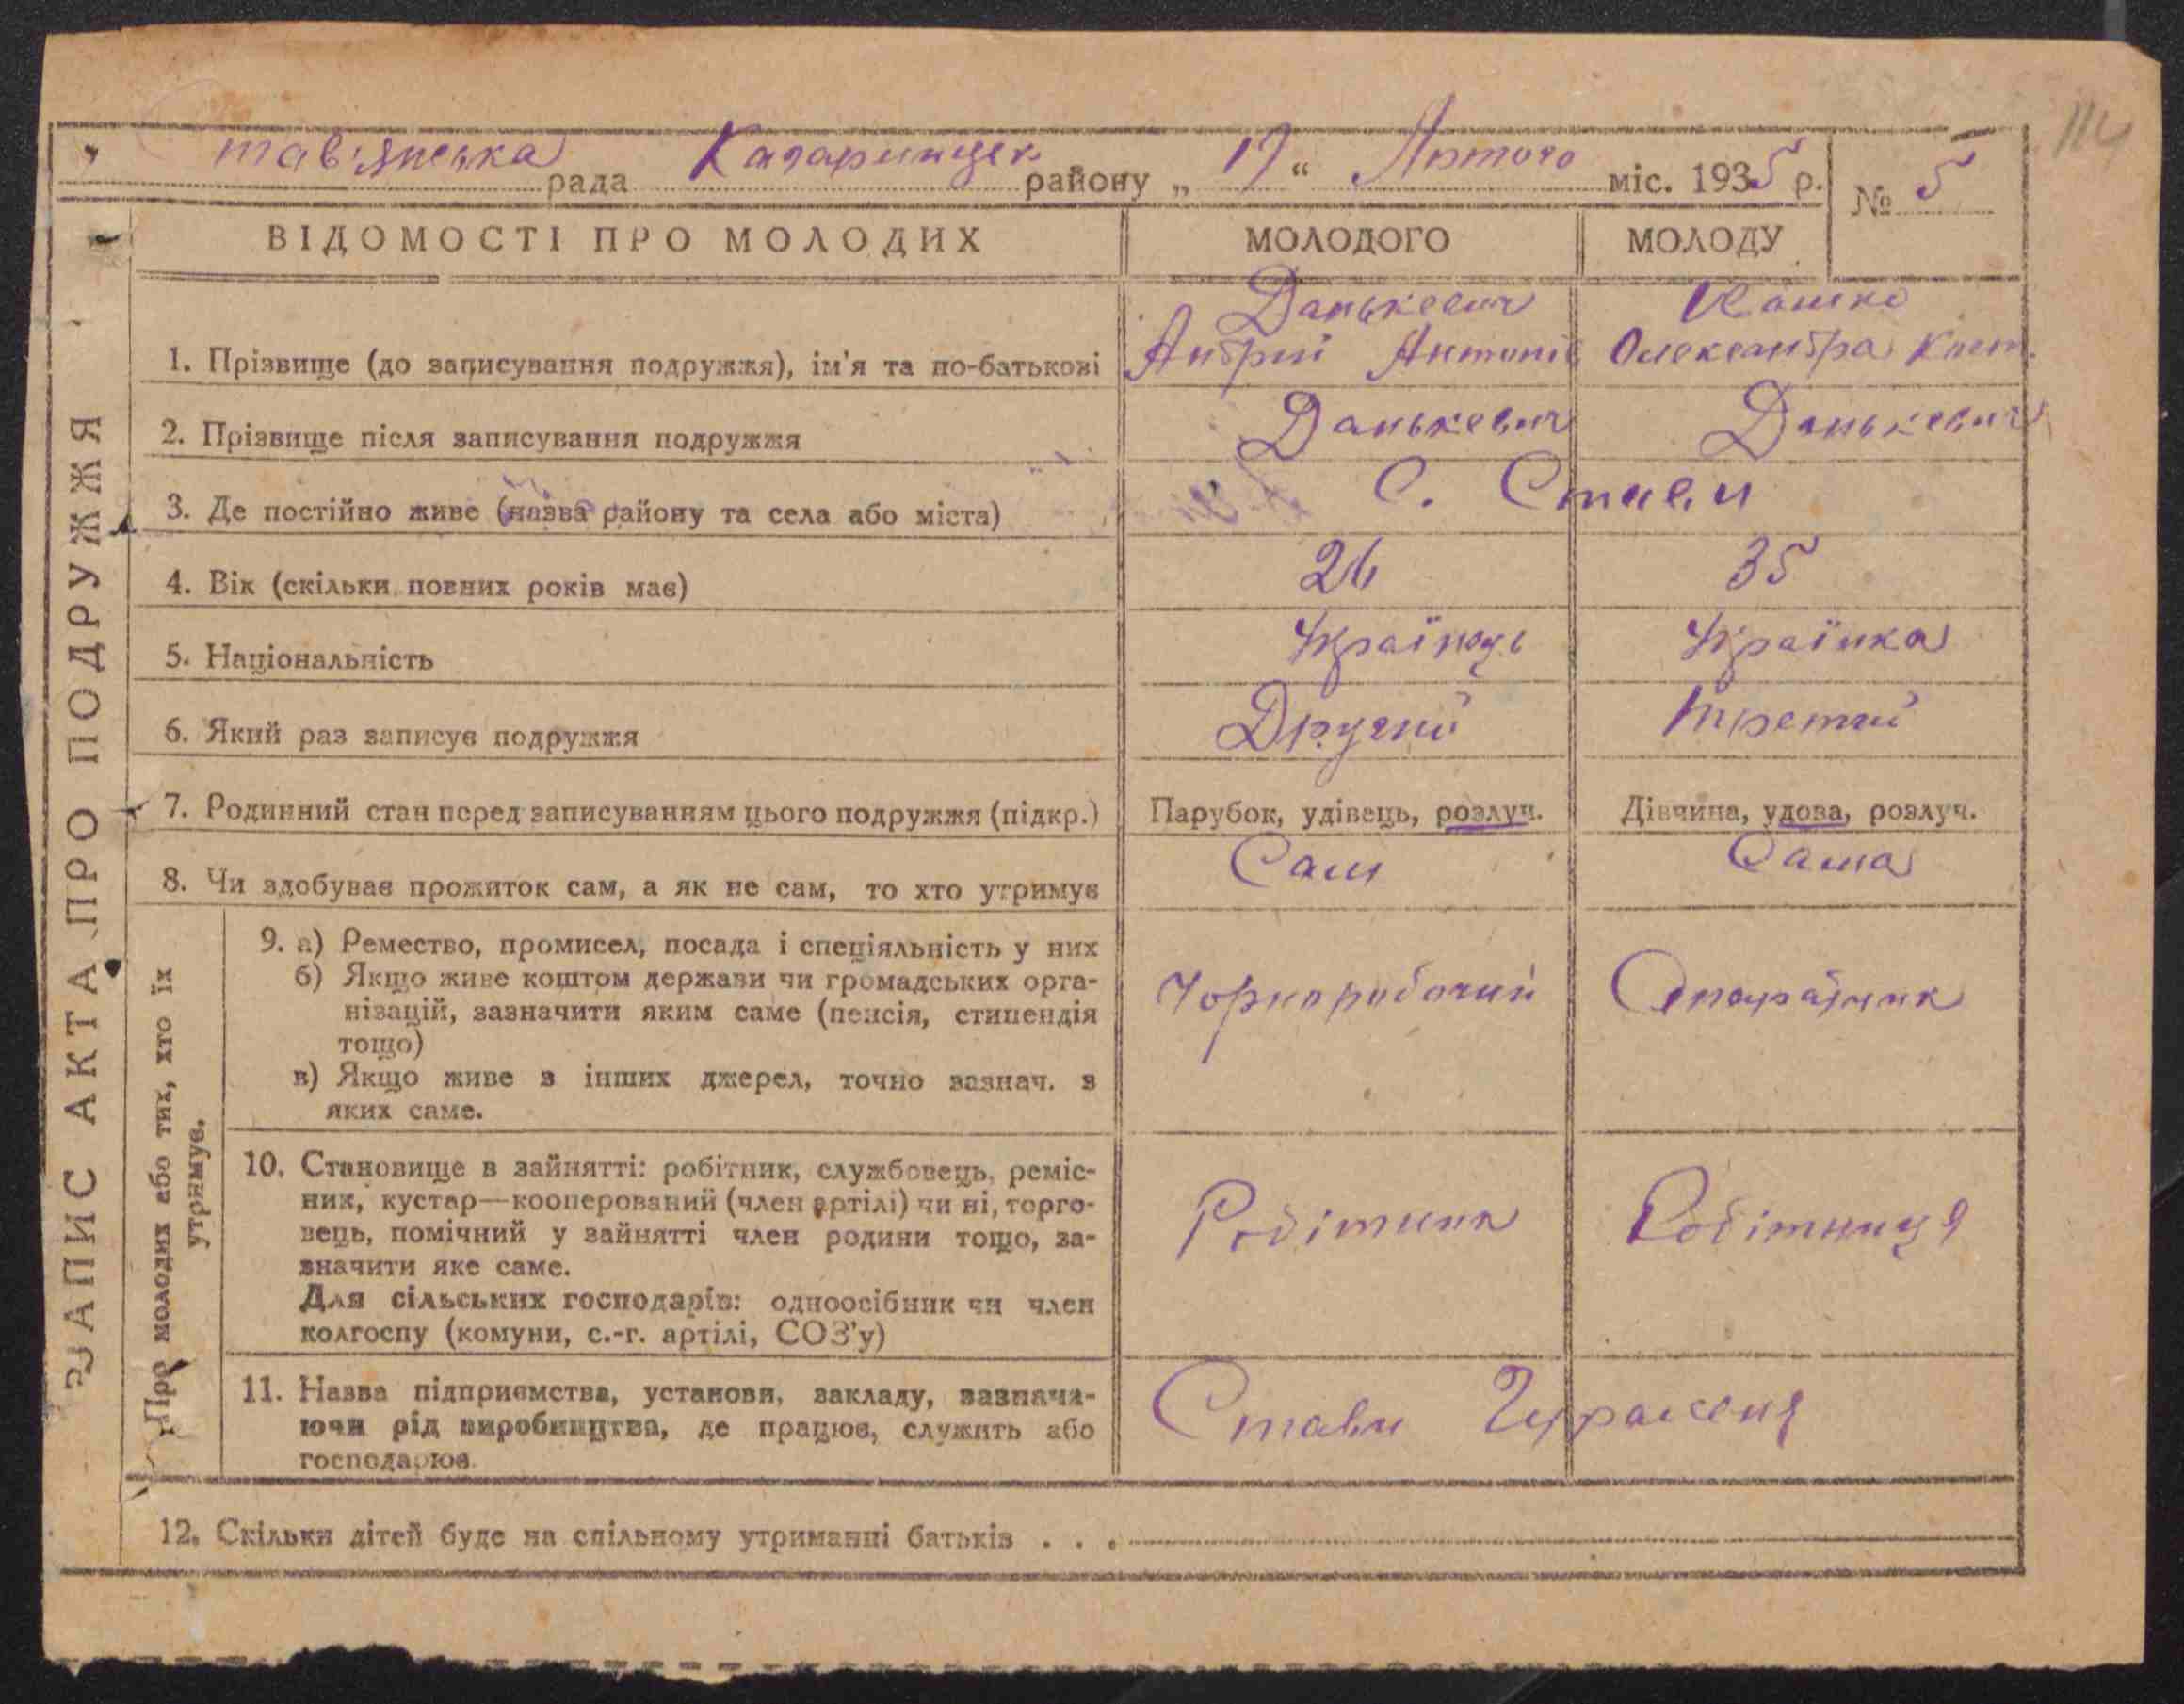 114
тавянська рада Кагарлицьк району „ 19 “ Лютого міс. 1935 р. № 5
ВІДОМОСТІ ПРО МОЛОДИХ МОЛОДОГО МОЛОДУ
ЗАПИС АКТА ПРО ПОДРУЖЖЯ
Данькевич
1. Прізвище (до записування подружжя), ім'я та по-батькові Андрій Антонів Олександра
2. Прізвище після записування подружжя Данькевич Данькевич
3. Де постійно живе (назва району та села або міста) С. Стави
4. Вік (скільки повних років має) 26 35
5. Національність Українець Українка
6. Який раз записує подружжя Другий третий
7. Родинний стан перед записуванням цього подружжя (підкр.) Парубок, удівець, розлуч. Дівчина, удова, розлуч.
8. Чи здобуває прожиток сам, а як не сам, то хто утримує Сам Сама
Про молодих або тих, хто їх
утримує.
9. а) Ремество, промисел, посада і спеціяльність у них
б) Якщо живе коштом держави чи громадських орга-
нізацій, зазначити яким саме (пенсія, стипендія
тощо)
в) Якщо живе з інших джерел, точно зазнач. з
яких саме.
Чорноробочий
10. Становище в зайнятті: робітник, службовець, реміс-
ник, кустар—кооперований (член артілі) чи ні, торго-
вець, помічний у зайнятті член родини тощо, за-
значити яке саме.
Для сільських господарів: одноосібник чи член
колгоспу (комуни, с.-г. артілі, СОЗ'у)
Робітник Робітниця
11. Назва підприємства, установи, закладу, зазнача-
ючи рід виробництва, де працює, служить або
господарює.
Стави
12. Скільки дітей буде на спільному утриманні батьків . . .